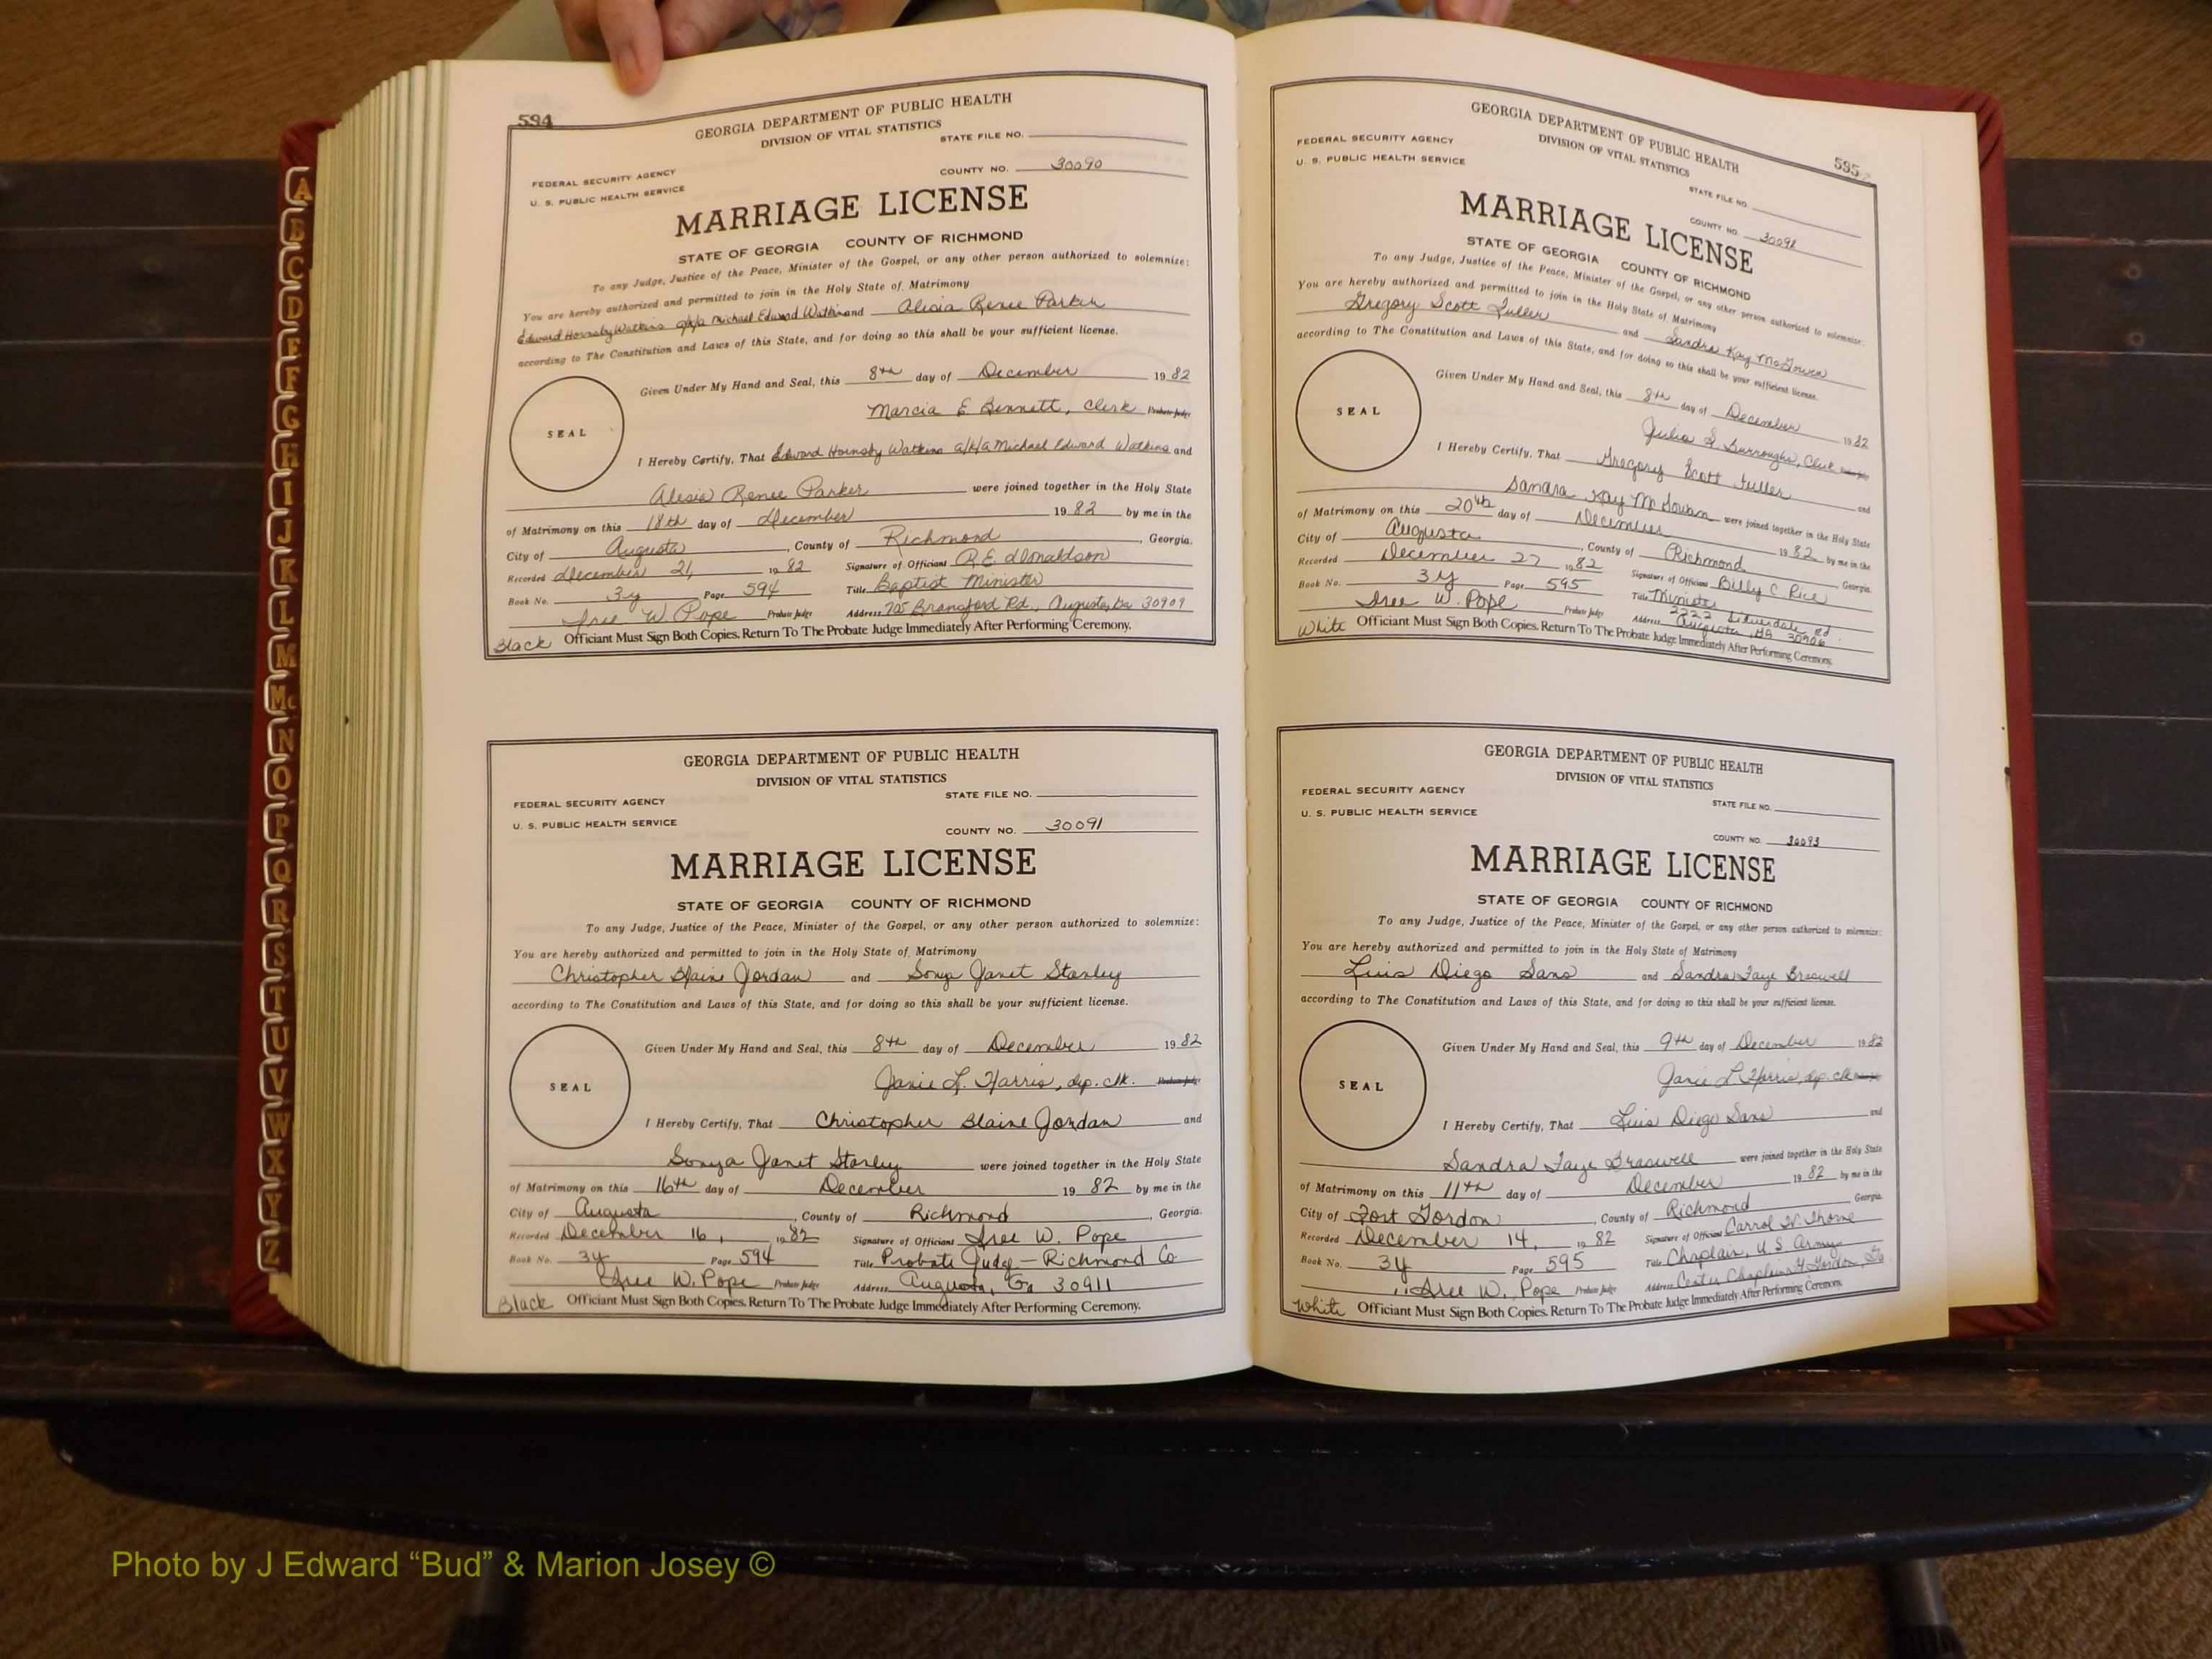 A
B
C
D
E
F
G
H
I
J
K
L
M
Mc
N
O
P
Q
R
S
T
U
V
W
X
Y
Z
594
GEORGIA DEPARTMENT OF PUBLIC HEALTH
DIVISION OF VITAL STATISTICS
STATE FILE NO.
FEDERAL SECURITY AGENCY
COUNTY NO. 30090
U. S. PUBLIC HEALTH SERVICE
MARRIAGE LICENSE
STATE OF GEORGIA COUNTY OF RICHMOND
To any Judge, Justice of the Peace, Minister of the Gospel, or any other person authorized to solemnize:
You are hereby authorized and permitted to join in the Holy State of Matrimony
Edward Hornsby Watkins a/k/a Michael Edward Watkins and Alesia Renee Parker
according to The Constitution and Laws of this State, and for doing so this shall be your sufficient license.
Given Under My Hand and Seal, this 8th day of December 1982
SEAL
Marcia E. Bennett, Clerk Probate Judge
I Hereby Certify, That Edward Hornsby Watkins a/k/a Michael Edward Watkins and
Alesia Renee Parker were joined together in the Holy State
of Matrimony on this 18th day of December 1982 by me in the
City of Augusta, County of Richmond, Georgia.
Recorded December 21, 1982 Signature of Officiant R.E. Donaldson
Book No. 3y Page 594 Title Baptist Minister
Iree W. Pope Probate Judge Address 705 Bransford Rd., Augusta, Ga 30909
Black Officiant Must Sign Both Copies. Return To The Probate Judge Immediately After Performing Ceremony.
GEORGIA DEPARTMENT OF PUBLIC HEALTH
DIVISION OF VITAL STATISTICS
STATE FILE NO.
FEDERAL SECURITY AGENCY
U. S. PUBLIC HEALTH SERVICE
COUNTY NO. 30091
MARRIAGE LICENSE
STATE OF GEORGIA COUNTY OF RICHMOND
To any Judge, Justice of the Peace, Minister of the Gospel, or any other person authorized to solemnize:
You are hereby authorized and permitted to join in the Holy State of Matrimony
Christopher Blaine Jordan and Sonya Janet Stanley
according to The Constitution and Laws of this State, and for doing so this shall be your sufficient license.
Given Under My Hand and Seal, this 8th day of December 1982
SEAL
Janie L. Harris, dep. clk. Probate Judge
I Hereby Certify, That Christopher Blaine Jordan and
Sonya Janet Stanley were joined together in the Holy State
of Matrimony on this 16th day of December 1982 by me in the
City of Augusta, County of Richmond, Georgia.
Recorded December 16, 1982 Signature of Officiant Iree W. Pope
Book No. 3y Page 594 Title Probate Judge - Richmond Co
Iree W. Pope Probate Judge Address Augusta, Ga 30911
Black Officiant Must Sign Both Copies. Return To The Probate Judge Immediately After Performing Ceremony.
GEORGIA DEPARTMENT OF PUBLIC HEALTH
DIVISION OF VITAL STATISTICS
595
FEDERAL SECURITY AGENCY
U. S. PUBLIC HEALTH SERVICE
STATE FILE NO.
COUNTY NO. 30092
MARRIAGE LICENSE
STATE OF GEORGIA COUNTY OF RICHMOND
To any Judge, Justice of the Peace, Minister of the Gospel, or any other person authorized to solemnize:
You are hereby authorized and permitted to join in the Holy State of Matrimony
Gregory Scott Fuller and Sandra Kay McGowen
according to The Constitution and Laws of this State, and for doing so this shall be your sufficient license.
Given Under My Hand and Seal, this 8th day of December 1982
SEAL
Julia S. Burroughs, Clerk
I Hereby Certify, That Gregory Scott Fuller and
Sandra Kay McGowen were joined together in the Holy State
of Matrimony on this 20th day of December 1982 by me in the
City of Augusta, County of Richmond Georgia.
Recorded December 27 1982 Signature of Officiant Billy C Rice
Book No. 3y Page 595 Title Minister
Iree W. Pope Probate Judge Address 2222 Silverdale Rd. Augusta, GA 30906
White Officiant Must Sign Both Copies. Return To The Probate Judge Immediately After Performing Ceremony.
GEORGIA DEPARTMENT OF PUBLIC HEALTH
DIVISION OF VITAL STATISTICS
FEDERAL SECURITY AGENCY
STATE FILE NO.
U. S. PUBLIC HEALTH SERVICE
COUNTY NO. 30093
MARRIAGE LICENSE
STATE OF GEORGIA COUNTY OF RICHMOND
To any Judge, Justice of the Peace, Minister of the Gospel, or any other person authorized to solemnize:
You are hereby authorized and permitted to join in the Holy State of Matrimony
Luis Diego Sans and Sandra Faye Braswell
according to The Constitution and Laws of this State, and for doing so this shall be your sufficient license.
Given Under My Hand and Seal, this 9th day of December 1982
SEAL
Janie L Harris, dep. clk
I Hereby Certify, That Luis Diego Sans and
Sandra Faye Braswell were joined together in the Holy State
of Matrimony on this 11th day of December 1982 by me in the
City of Fort Gordon, County of Richmond Georgia.
Recorded December 14, 1982 Signature of Officiant Carrol W. Thorne
Book No. 3y Page 595 Title Chaplain, U S Army
Iree W. Pope Probate Judge Address Center Chaplain Ft Gordon, Ga
White Officiant Must Sign Both Copies. Return To The Probate Judge Immediately After Performing Ceremony.
Photo by J Edward “Bud” & Marion Josey ©